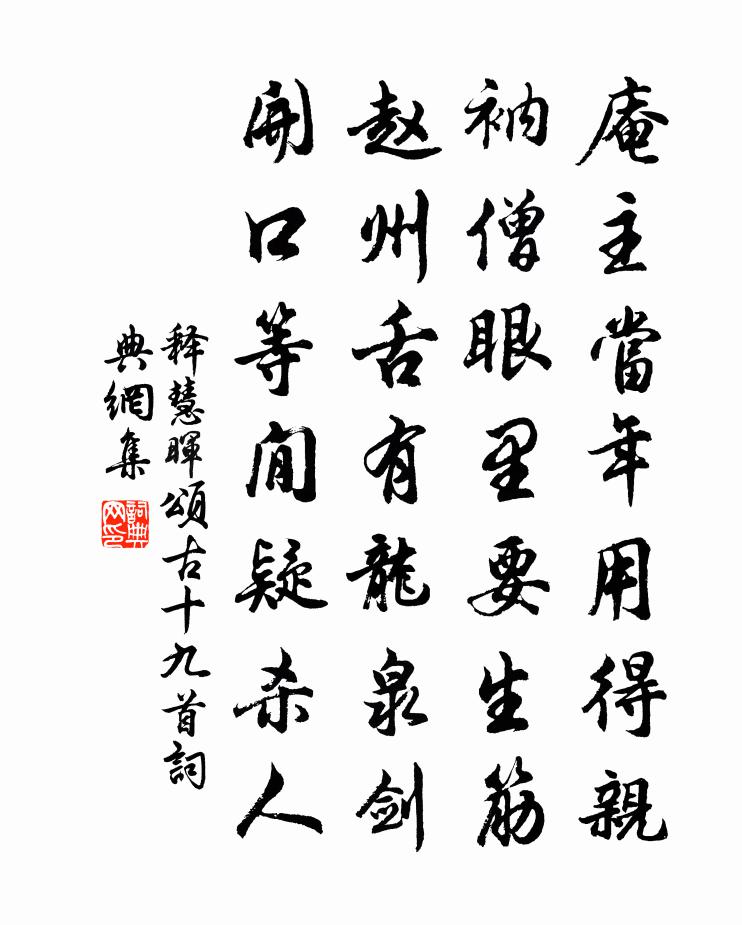 庵主當年用得親
衲僧眼里要生筋
赵州舌有龍泉劍
開口等閒疑杀人
释慧暉頌古十九首詞
典網集
詞典网印